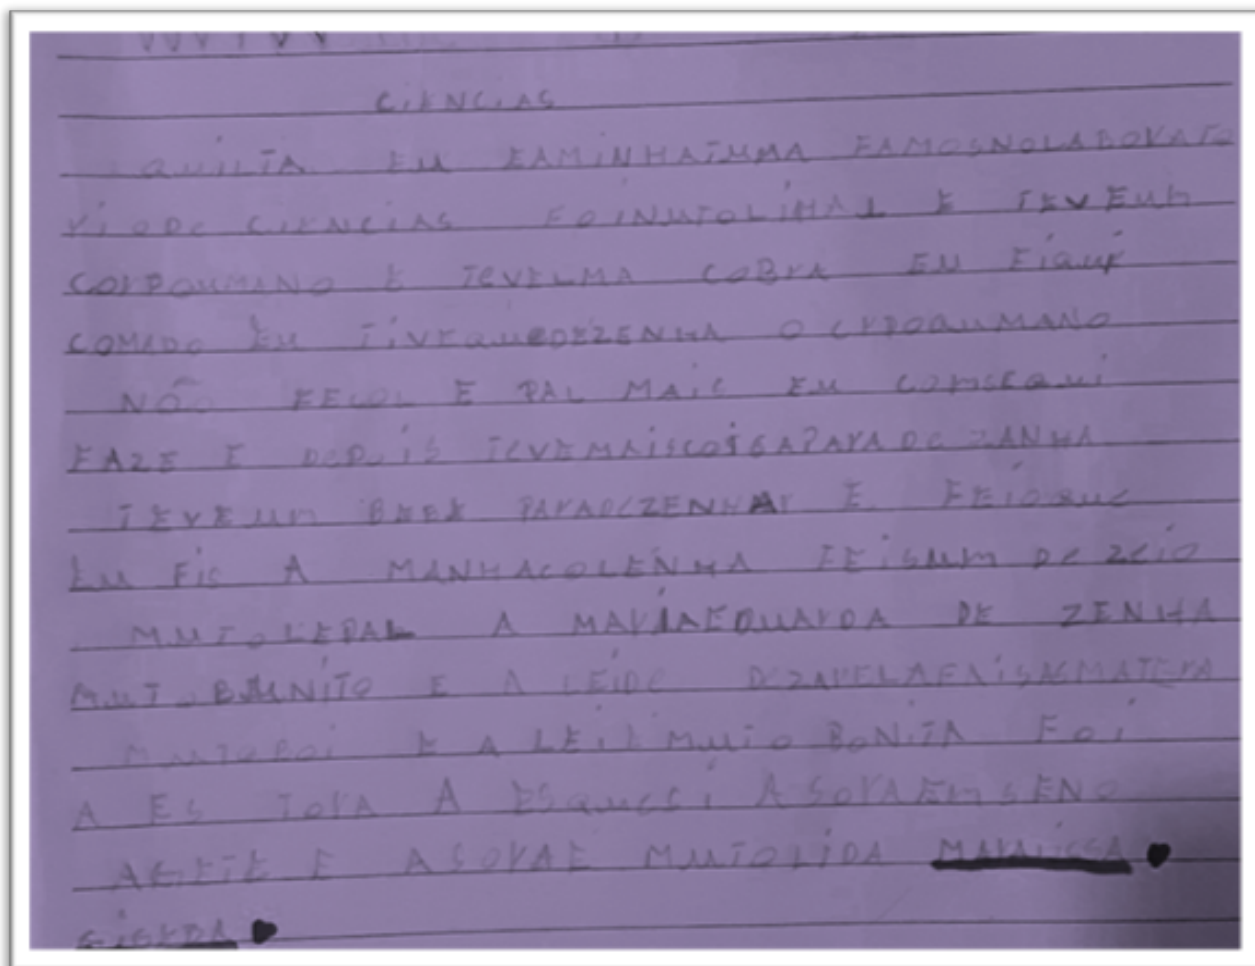 CIENCIAS
QUILTA EU EAMINHATUMA FAMOSNOLABORATO
RIODC CIENCIAS FOINUTOLIHAL E TEVEUM
CORPOUMANO E TEVEUMA COBRA EU FIQUE
COMEDO EU TIVEQUEDEZENHA O CRPOQUMANO
NÃO FEICOL E PAL MAIS EU COMSEQUI
FAZE E DEPUIS TEVEMAISCOISAPARADCZANHA
TEVEUM BEBE PARADCZENHAR E FEIOQUE
EU FIC A MANHACOLENHA FEISUM DCZEIO
MUTOLEPAL A MARIAEDUARDA DE ZENHA
MUTOBUNITO E A LEIDC
MUTOBOI E A LEIE MUITO BONITA FOI
A ES TORA A ESQUESI ASORAEMSENO
AGETE E ASORAE MUTOLIDA